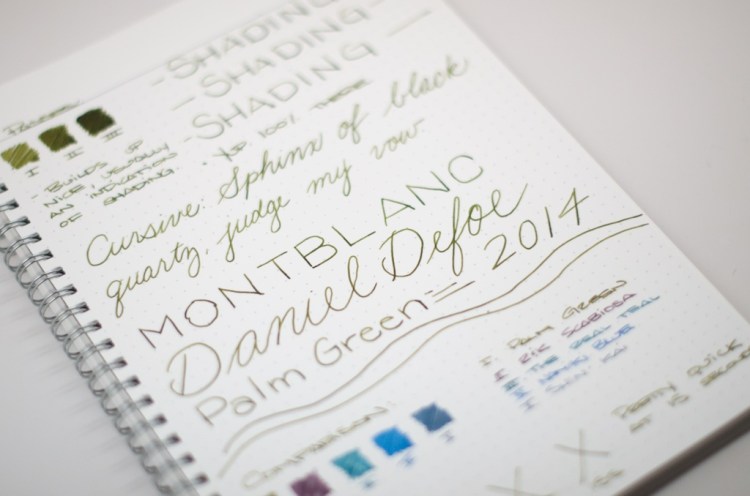 - SHADING
- SHADING -
SHADING -
PASSES
I II III
- BUILDS UP
NICE, USUALLY
AN INDICATION
OF SHADING.
• YUP. 100% THERE
Cursive: Sphinx of black
quartz, judge my vow.
MONTBLANC
Daniel Defoe
Palm Green - 2014
COMPARISON:
I. PALM GREEN
I R&K SCABIOSA
I THE REAL TEAL
I NAMIKI BLUE
I SHIN-KAI
PRETTY QUICK
AT 15 SECONDS